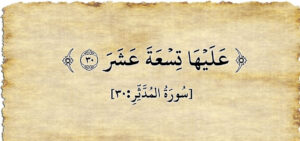 ﴿ عَلَيْهَا تِسْعَةَ عَشَرَ ۝٣٠ ﴾
[سُورَةُ المُدَّثِّرِ:٣٠]